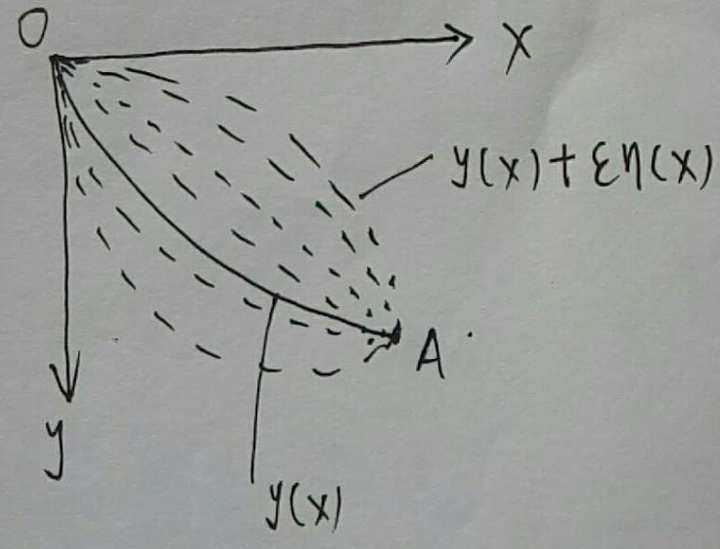 O
X
y(x)+εη(x)
A
y
y(x)